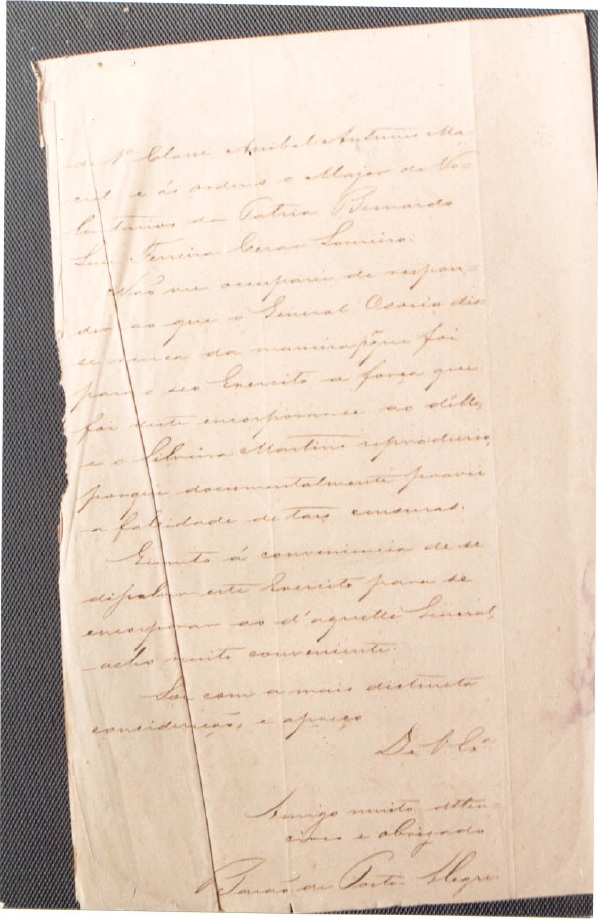 de 1ª Classe Anibal Antunes Ma-
ciel e ás ordens o Major de Vo-
luntarios da Patria Bernardo
Luis Ferreira Cezar Loureiro.
Não me occuparei de respon-
der ao que o General Osorio dis-
se acerca da maneira pr. que foi
para o seo Exercito a força que
foi deste encorporar-se ao d'elle,
e o Silveira Martins reproduzio,
porque documentalmente provei
a falsidade de taes censuras.
Quanto á conveniencia de se
dissolver este Exercito para se
encorporar ao d'aquelle General,
acho muito conveniente.
Sou com a mais distincta
consideração, e apreço
De V. Exª
Amigo muito atten-
cioso e obrigado
Barão de Porto Alegre